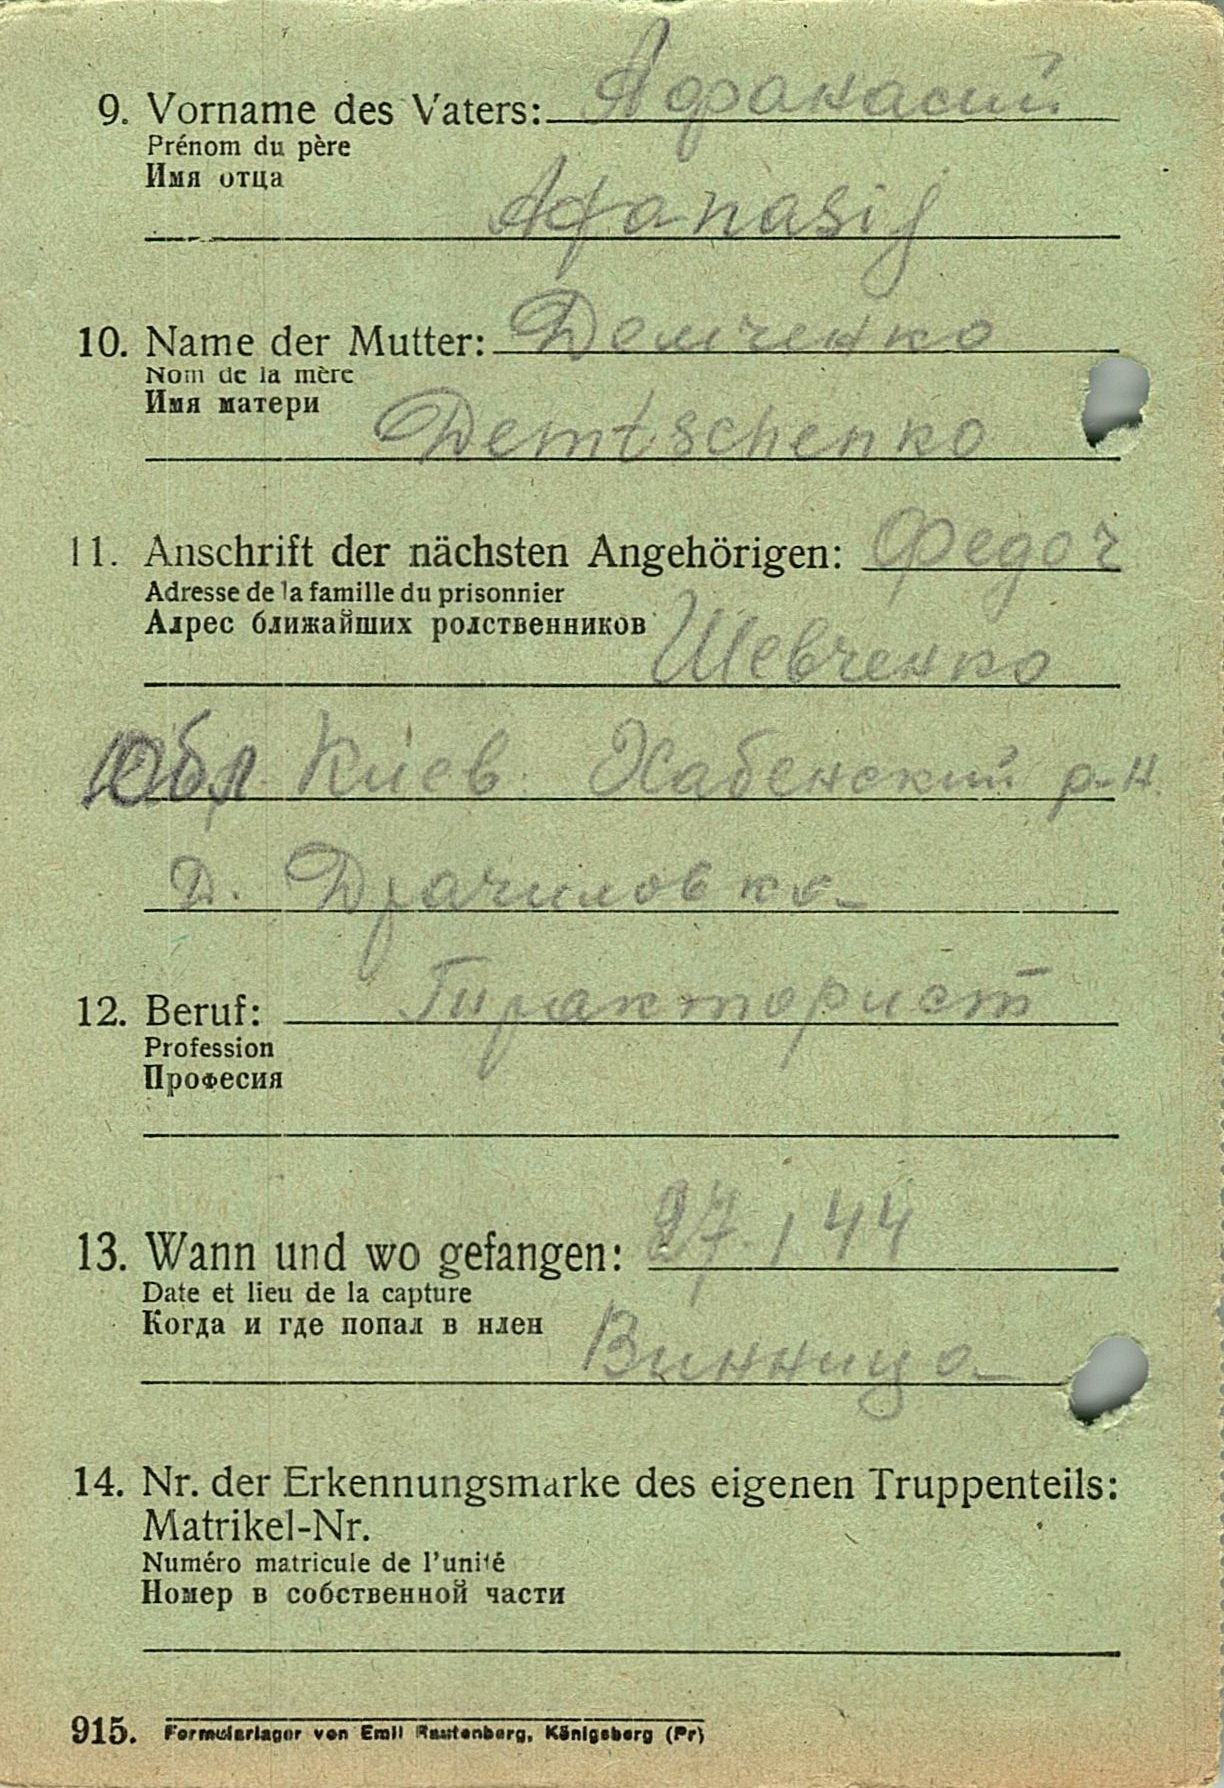 9. Vorname des Vaters: Афанасий
Prénom du père
Имя отца
Afanasij
10. Name der Mutter: Демченко
Nom de la mère
Имя матери
Demtschenko
11. Anschrift der nächsten Angehörigen: Федор
Adresse de la famille du prisonnier
Адрес ближайших родственников
Шевченко
Обл Киев Хабенский р-н.
Д. Драчиловка
12. Beruf: Тракторист
Profession
Професия
13. Wann und wo gefangen: 27.1.44
Date et lieu de la capture
Когда и где попал в плен
Винница
14. Nr. der Erkennungsmarke des eigenen Truppenteils:
Matrikel-Nr.
Numéro matricule de l'unité
Номер в собственной части
915. Formularlager von Emil Rautenberg, Königsberg (Pr)